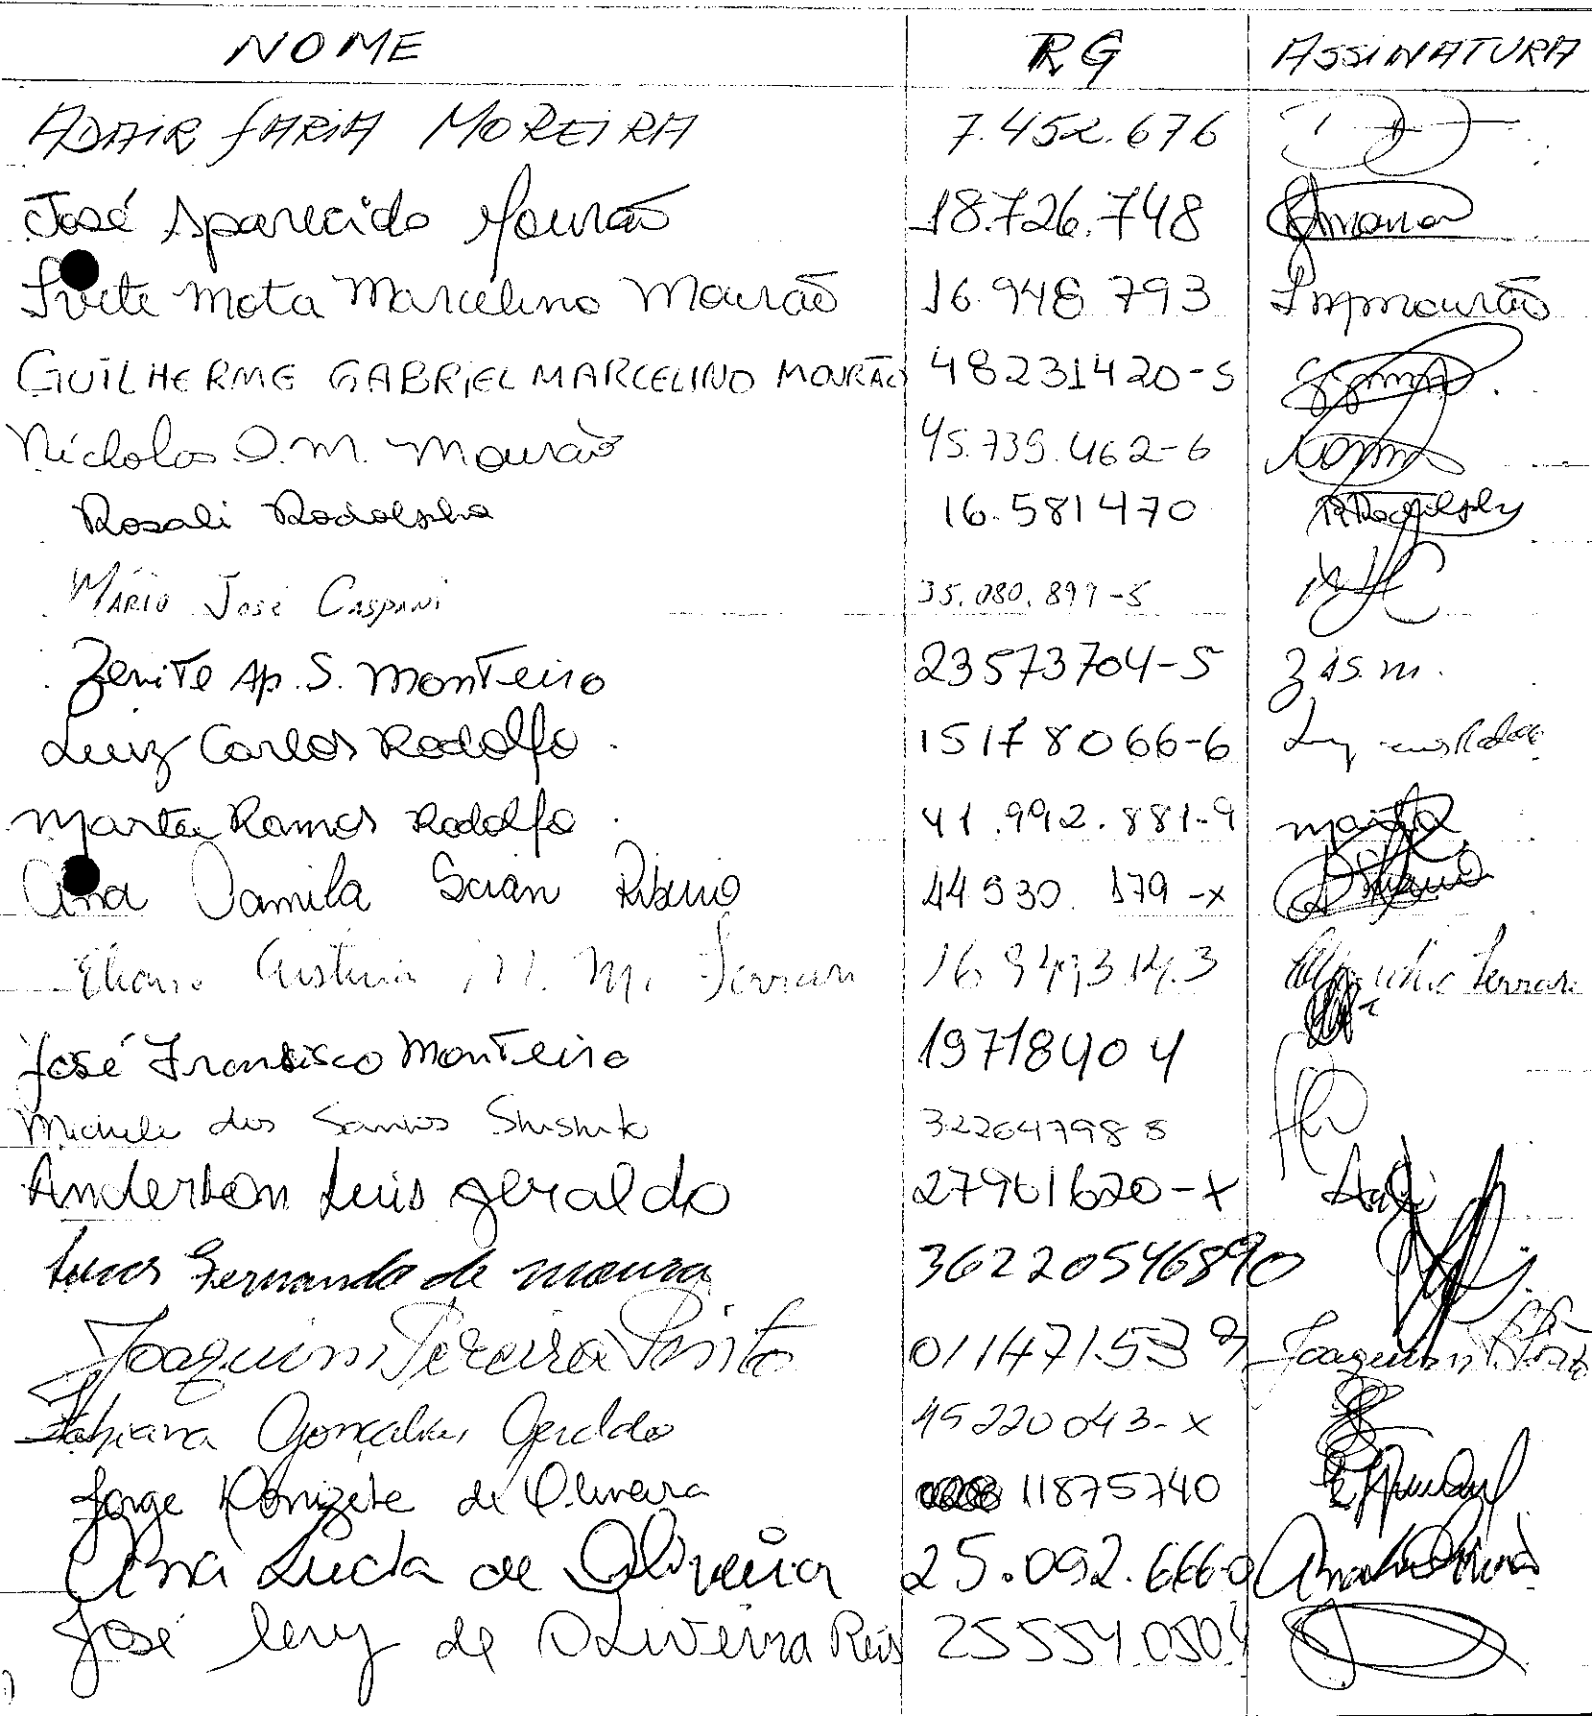 NOME RG ASSINATURA
ADAIR FARIA MOREIRA 7.452.676
José Aparecido Mourão 18.726.748
Ivete Mota Marcelino Mourão 16.948.793 Immourão
GUILHERME GABRIEL MARCELINO MOURÃO 48231420-5
Nicholas O. M. Mourão 45.739.462-6
Rosali Rodolpho 16.581470
MÁRIO JOSÉ CASPANI 35.080.899-5
Zenite Ap. S. Monteiro 23573704-5
Luiz Carlos Rodolfo 15178066-6
Marta Ramos Rodolfo 41.992.881-9 marta
Ana Camila Scian Ribeiro 44530.179-x
Cristina M. M. Ferrari
José Francisco Monteiro 19718404
Michele dos Santos 322647988
Anderson Luis Geraldo 27961620-x
Lucas Fernando de Moura 36220546890
Joaquim Pereira Pinto 011471539 Joaquim P. Pinto
Fabiana Gonçalves Geraldo 45220043-x
Jorge Donizete de Oliveira 11875740
Ana Lucia de Oliveira 25.092.6660
José de Oliveira Reis